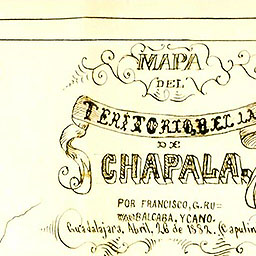 MAPA
DEL
TERITORIO, DEL LA
DE
CHAPALA.
POR FRANCISCO, G. RU=
BALCABA, Y CANO.
Guadalajara, Abril, 26 de 1852. (Capulin